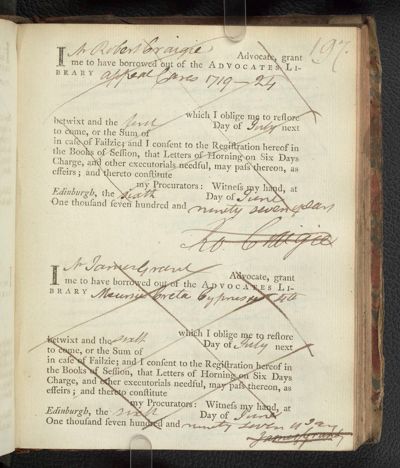 197.
I Mr Robert Craigie Advocate, grant
me to have borrowed out of the ADVOCATES LI-
BRARY appeal Cases 1719-24
which I oblige me to reſtore
betwixt and the Day of July next
to come, or the Sum of
in caſe of Failzie; and I conſent to the Regiſtration hereof in
the Books of Seſſion, that Letters of Horning on Six Days
Charge, and other executorials needful, may paſs thereon, as
effeirs; and thereto conſtitute
my Procurators: Witneſs my hand, at
Edinburgh, the sixth Day of June
One thouſand ſeven hundred and ninety seven years
Ro Craigie
I Mr James Grant Advocate, grant
me to have borrowed out of the ADVOCATES LI-
BRARY Creta Cyprus 4to
which I oblige me to reſtore
betwixt and the sixth Day of July next
to come, or the Sum of
in caſe of Failzie; and I conſent to the Regiſtration hereof in
the Books of Seſſion, that Letters of Horning on Six Days
Charge, and other executorials needful, may paſs thereon, as
effeirs; and thereto conſtitute
my Procurators: Witneſs my hand, at
Edinburgh, the sixth Day of June
One thouſand ſeven hundred and ninety seven years
James Grant